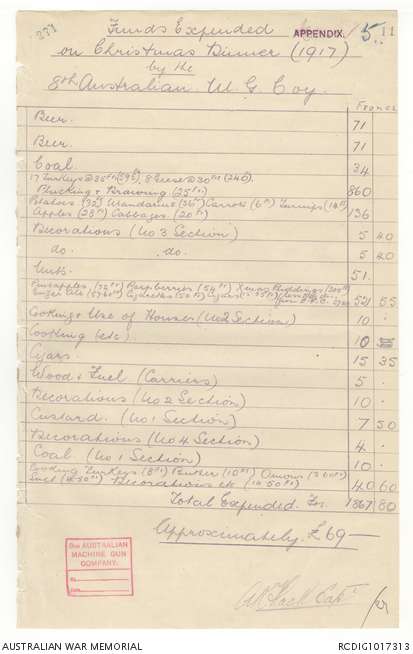 271
Funds Expended
APPENDIX. 5. 11
on Christmas Dinner (1917)
by the
8th Australian M G Coy.
Francs
Beer. 71
Beer. 71
Coal. 34
17 Turkeys @ 35 Frs (595) 8 Geese @ 30 Frs (240).
Plucking & Drawing (25 Frs) 860
Potatoes (32) Mandarins (36) Carrots (6 Frs) Turnips (14 Frs)
Apples (28 Frs) Cabbages (20 Frs) 136
Decorations (No 3 Section) 5 40
do. do. 5 40
Nuts. 51.
Pineapples Raspberries (54 Frs) Xmas Puddings
Ginger Ale Cigarettes (50 Frs) Cigars 521 55
Cooking & Use of Houses (No 2 Section) 10 .
Cooking (etc) 10
Cigars. 15 35
Wood & Fuel (Carriers) 5 .
Decorations (No 2 Section) 10 .
Custard. (No 1 Section) 7 50
Decorations (No 4 Section) 4 .
Coal (No 1 Section) 10 .
Cooking Turkeys (8 Frs) Butter (10 Frs) Onions
Fuel Decorations etc 40 60
Total Expended. Frs. 1867 80
Approximately £69 —
8TH AUSTRALIAN
MACHINE GUN
COMPANY.
No.
Date
Capt
AUSTRALIAN WAR MEMORIAL
RCDIG1017313